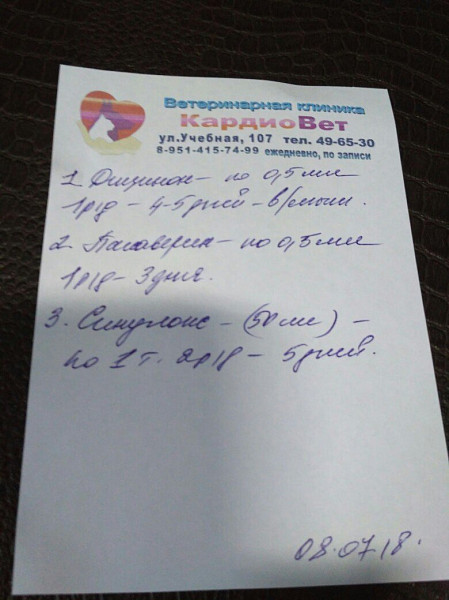 Ветеринарная клиника
КардиоВет
ул.Учебная, 107 тел. 49-65-30
8-951-415-74-99 ежедневно, по записи
1. Дицинон - по 0,5 мл
1р/д - 4-5 дней - в/мыш.
2. Папаверин - по 0,5 мл
1р/д - 3 дня.
3. Синулокс - (50 мг) -
по 1 т. 2р/д - 5 дней.
08.07.18.